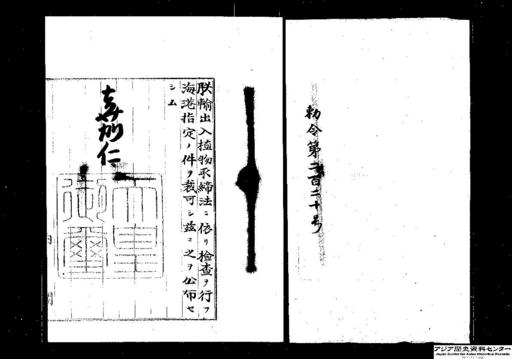 勅令第二百二十号
朕輸出入植物取締法ニ依リ検査ヲ行フ
海港指定ノ件ヲ裁可シ茲ニ之ヲ公布セ
シム
嘉仁
天皇
御璽
アジア歴史資料センター
Japan Center for Asian Historical Records